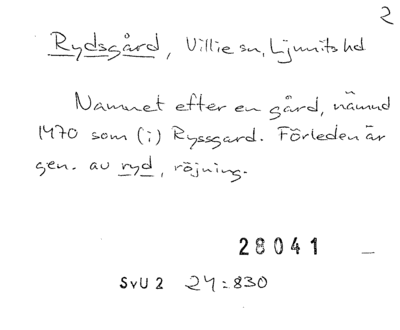 2
Rydsgård, Villie sn, Ljunits hd
Namnet efter en gård, nämnd
1470 som (i) Ryssgard. Förleden är
gen. av ryd, röjning.
28041 —
SvU 2 24:830